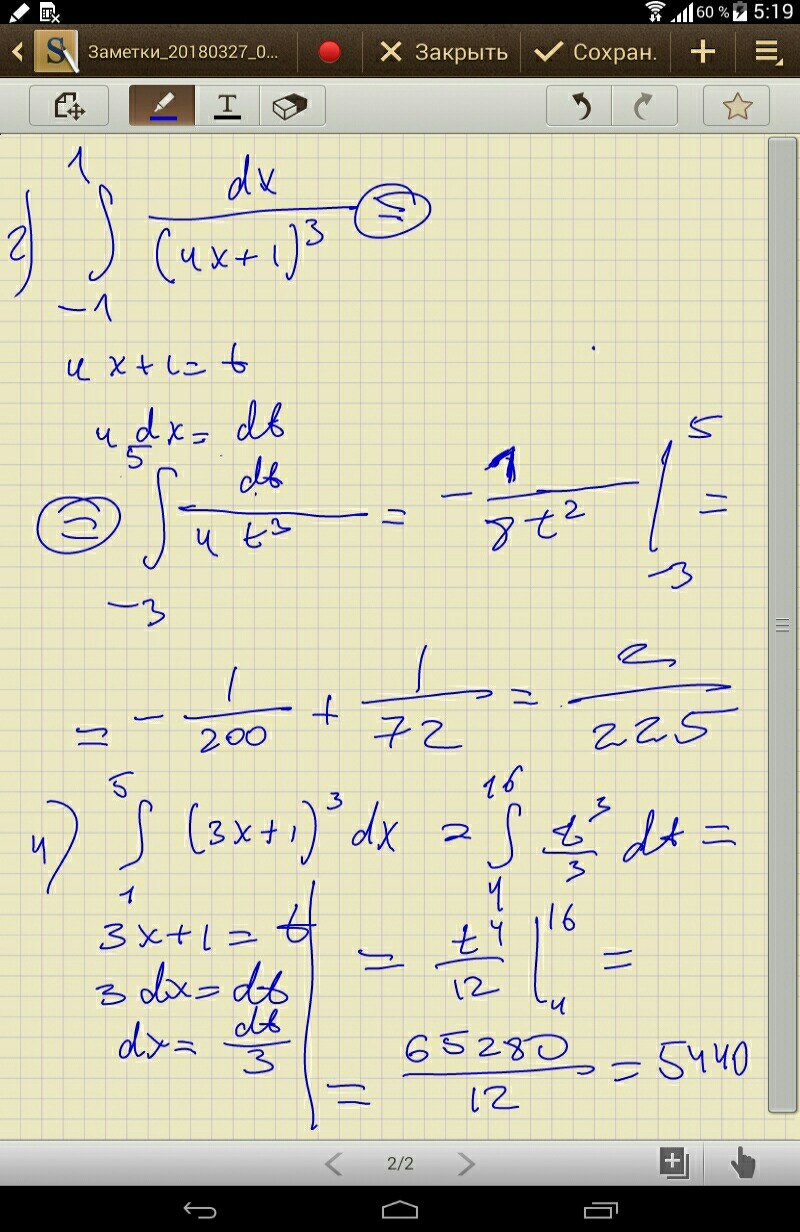 60 % 5:19
Заметки_20180327_0... Закрыть Сохран.
T
2) ∫_{-1}^{1} dx/(4x+1)^3 =
4x+1 = t
4 dx = dt
= ∫_{-3}^{5} dt/(4 t^3) = - 1/(8t^2) |_{-3}^{5} =
= - 1/200 + 1/72 = 2/225
4) ∫_{1}^{5} (3x+1)^3 dx = ∫_{4}^{16} t^3/3 dt =
3x+1 = t
3 dx = dt
dx = dt/3
= t^4/12 |_{4}^{16} =
= 65280/12 = 5440
2/2